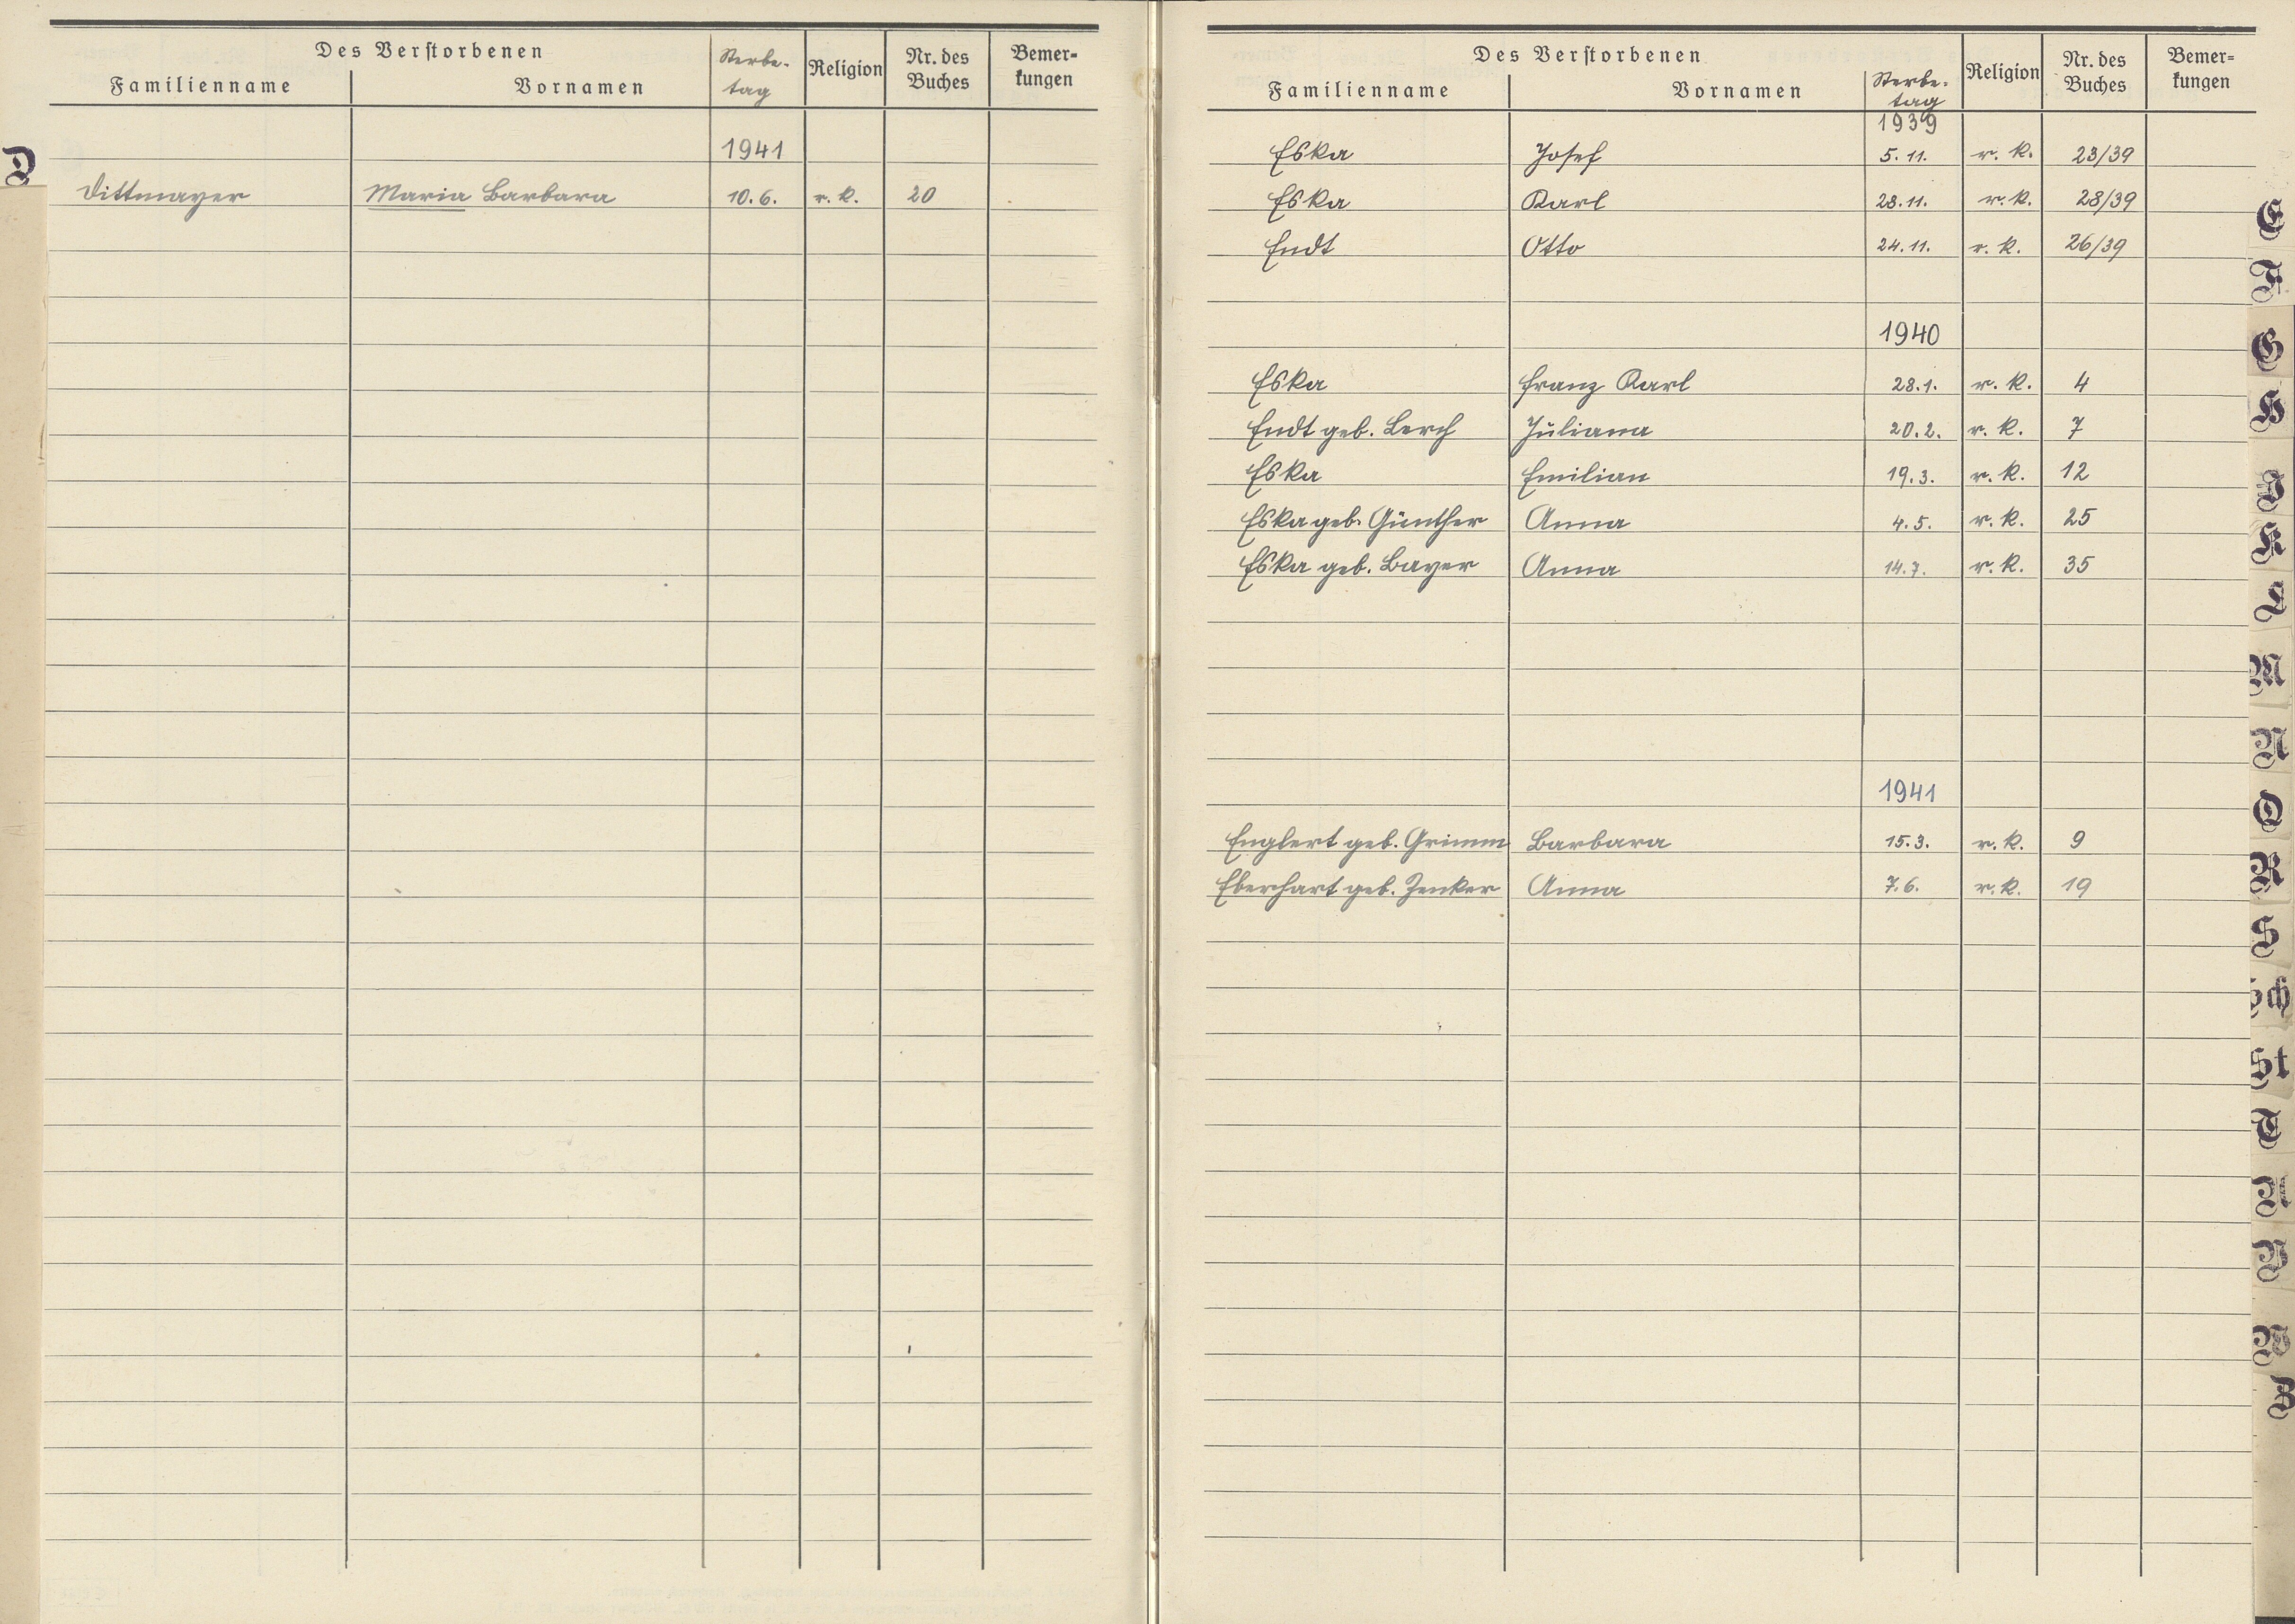 Des Verstorbenen
Familienname Vornamen Sterbe-tag Religion Nr. des Buches Bemer-kungen
D
1941
Dittmayer Maria Barbara 10.6. r. k. 20
Des Verstorbenen
Familienname Vornamen Sterbe-tag Religion Nr. des Buches Bemer-kungen
1939
Eska Josef 5.11. r. k. 23/39
Eska Karl 28.11. r. k. 28/39
Endt Otto 24.11. r. k. 26/39
1940
Eska Franz Karl 28.1. r. k. 4
Endt geb. Lerch Juliana 20.2. r. k. 7
Eska Emilian 19.3. r. k. 12
Eska geb. Günther Anna 4.5. r. k. 25
Eska geb. Bayer Anna 14.7. r. k. 35
1941
Englert geb. Grimm Barbara 15.3. r. k. 9
Eberhart geb. Zenker Anna 7.6. r. k. 19
E
F
G
H
J
K
L
M
N
O
R
S
Sch
St
T
U
V
W
Z